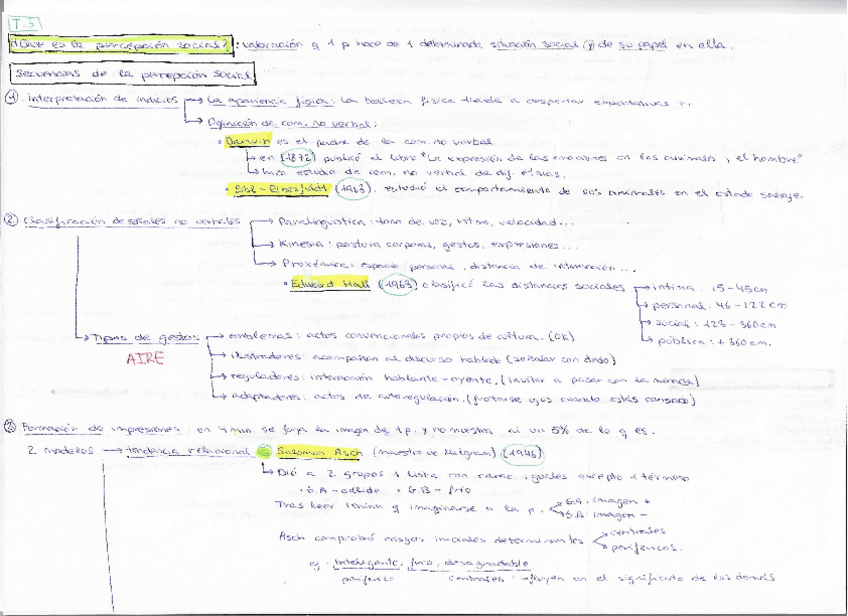 T.3
¿Qué es la percepción social? : valoración q 1 p hace de 1 determinada situación social y de su papel en ella.
Secuencias de la percepción social
① Interpretación de indicios → La apariencia física: la belleza física tiende a despertar expectativas +.
→ Definición de com. no verbal:
• Darwin es el padre de la com. no verbal
→ en (1872) publicó el libro "La expresión de las emociones en los animales y el hombre"
→ hizo estudio de com. no verbal de dif.
• Eibl-Eibesfeldt. estudió el comportamiento de los animales en el estado salvaje.
② Clasificación de señales no verbales → Paralingüística: tono de voz, ritmo, velocidad...
→ Kinesia: postura corporal, gestos, expresiones...
→ Proxémica: espacio personal, distancia de interacción...
• Edward Hall (1963) clasificó las distancias sociales → íntima: 15-45cm
→ personal: 46-122cm
→ social: 123-360cm
→ pública: +360cm.
→ Tipos de gestos → emblemas: actos convencionales propios de cultura. (OK)
AIRE → ilustradores: acompañan al discurso hablado (señalar con dedo)
→ reguladores: interacción hablante-oyente. (invitar a pasar con la mano)
→ adaptadores: actos de autoregulación. (frotarse ojos cuando estás cansado)
③ Formación de impresiones: en 4 min se forja la imagen de 1 p. y no muestra ni un 5% de lo q es.
2 modelos → tendencia relacional Solomon Asch (maestro de Milgram) (1946)
→ Dió a 2 grupos 1 lista con carac. iguales excepto 1 término
• G.A - cálido • G.B - frío
Tras leer tenían q imaginarse a la p. G.A. imagen +
G.B. imagen -
Asch comprobó rasgos iniciales determinantes centrales
periféricos.
ej. Inteligente, frío, desagradable
periférico centrales: influyen en el significado de los demás